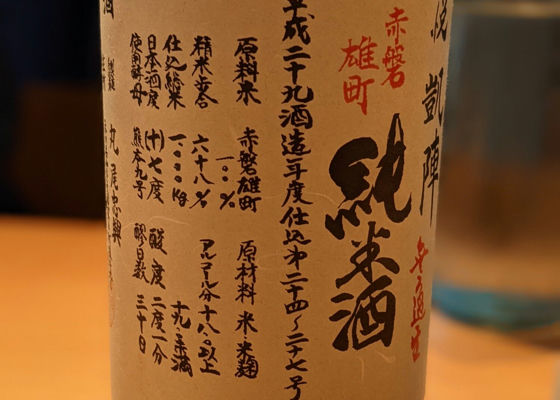 悦凱陣
赤磐
雄町
純米酒
平成二十九酒造年度仕込第二十四〜二十七号
原料米 赤磐雄町
一〇〇%
原材料 米・米麹
精米歩合 六十八%
アルコール分十八度以上
十九度未満
仕込総米 一〇〇〇kg
日本酒度 (+)七度
酸度 二度一分
使用酵母 熊本九号
醪日数 三十日
丸尾忠興
酒